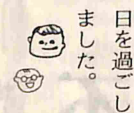 日を過ごし
ました。